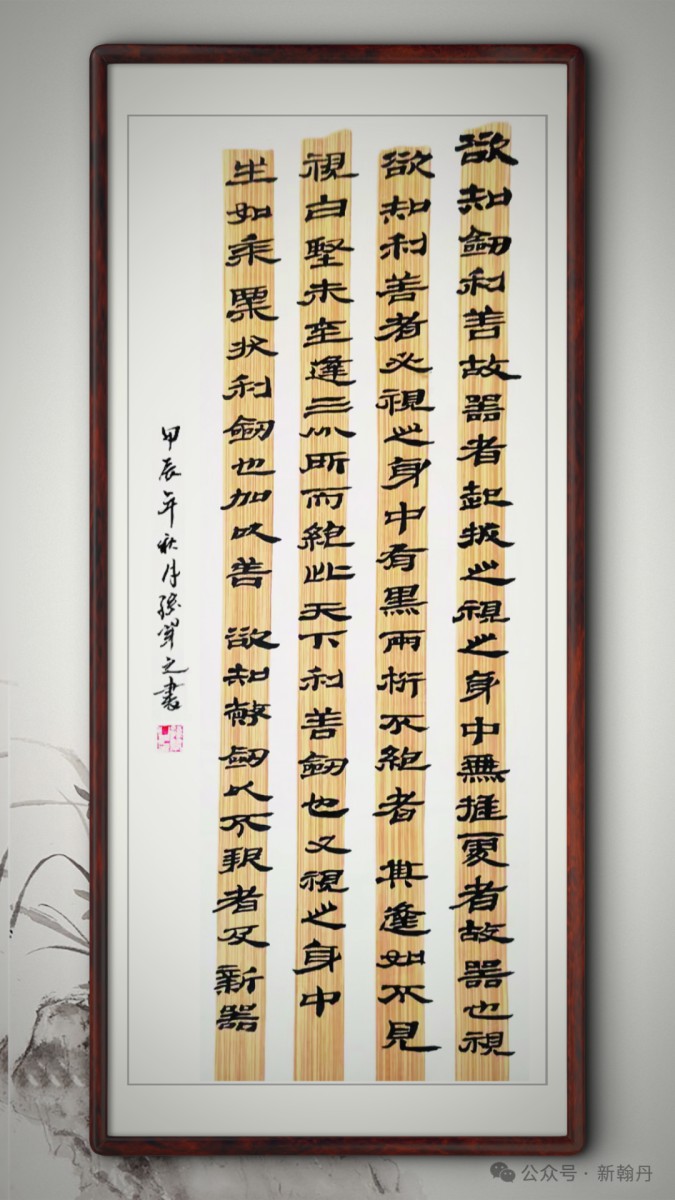 欲知劒利善故器者起拔之視之身中無推處者故器也視
欲知利善者必視之身中有黑兩桁不絕者 其逢如不見
視白堅未至逢三分所而絕此天下利善劒也又視之身中
生如黍粟狀利劒也加以善 欲知幣劒以不報者及新器
甲辰年秋月之書
公众号 · 新翰丹